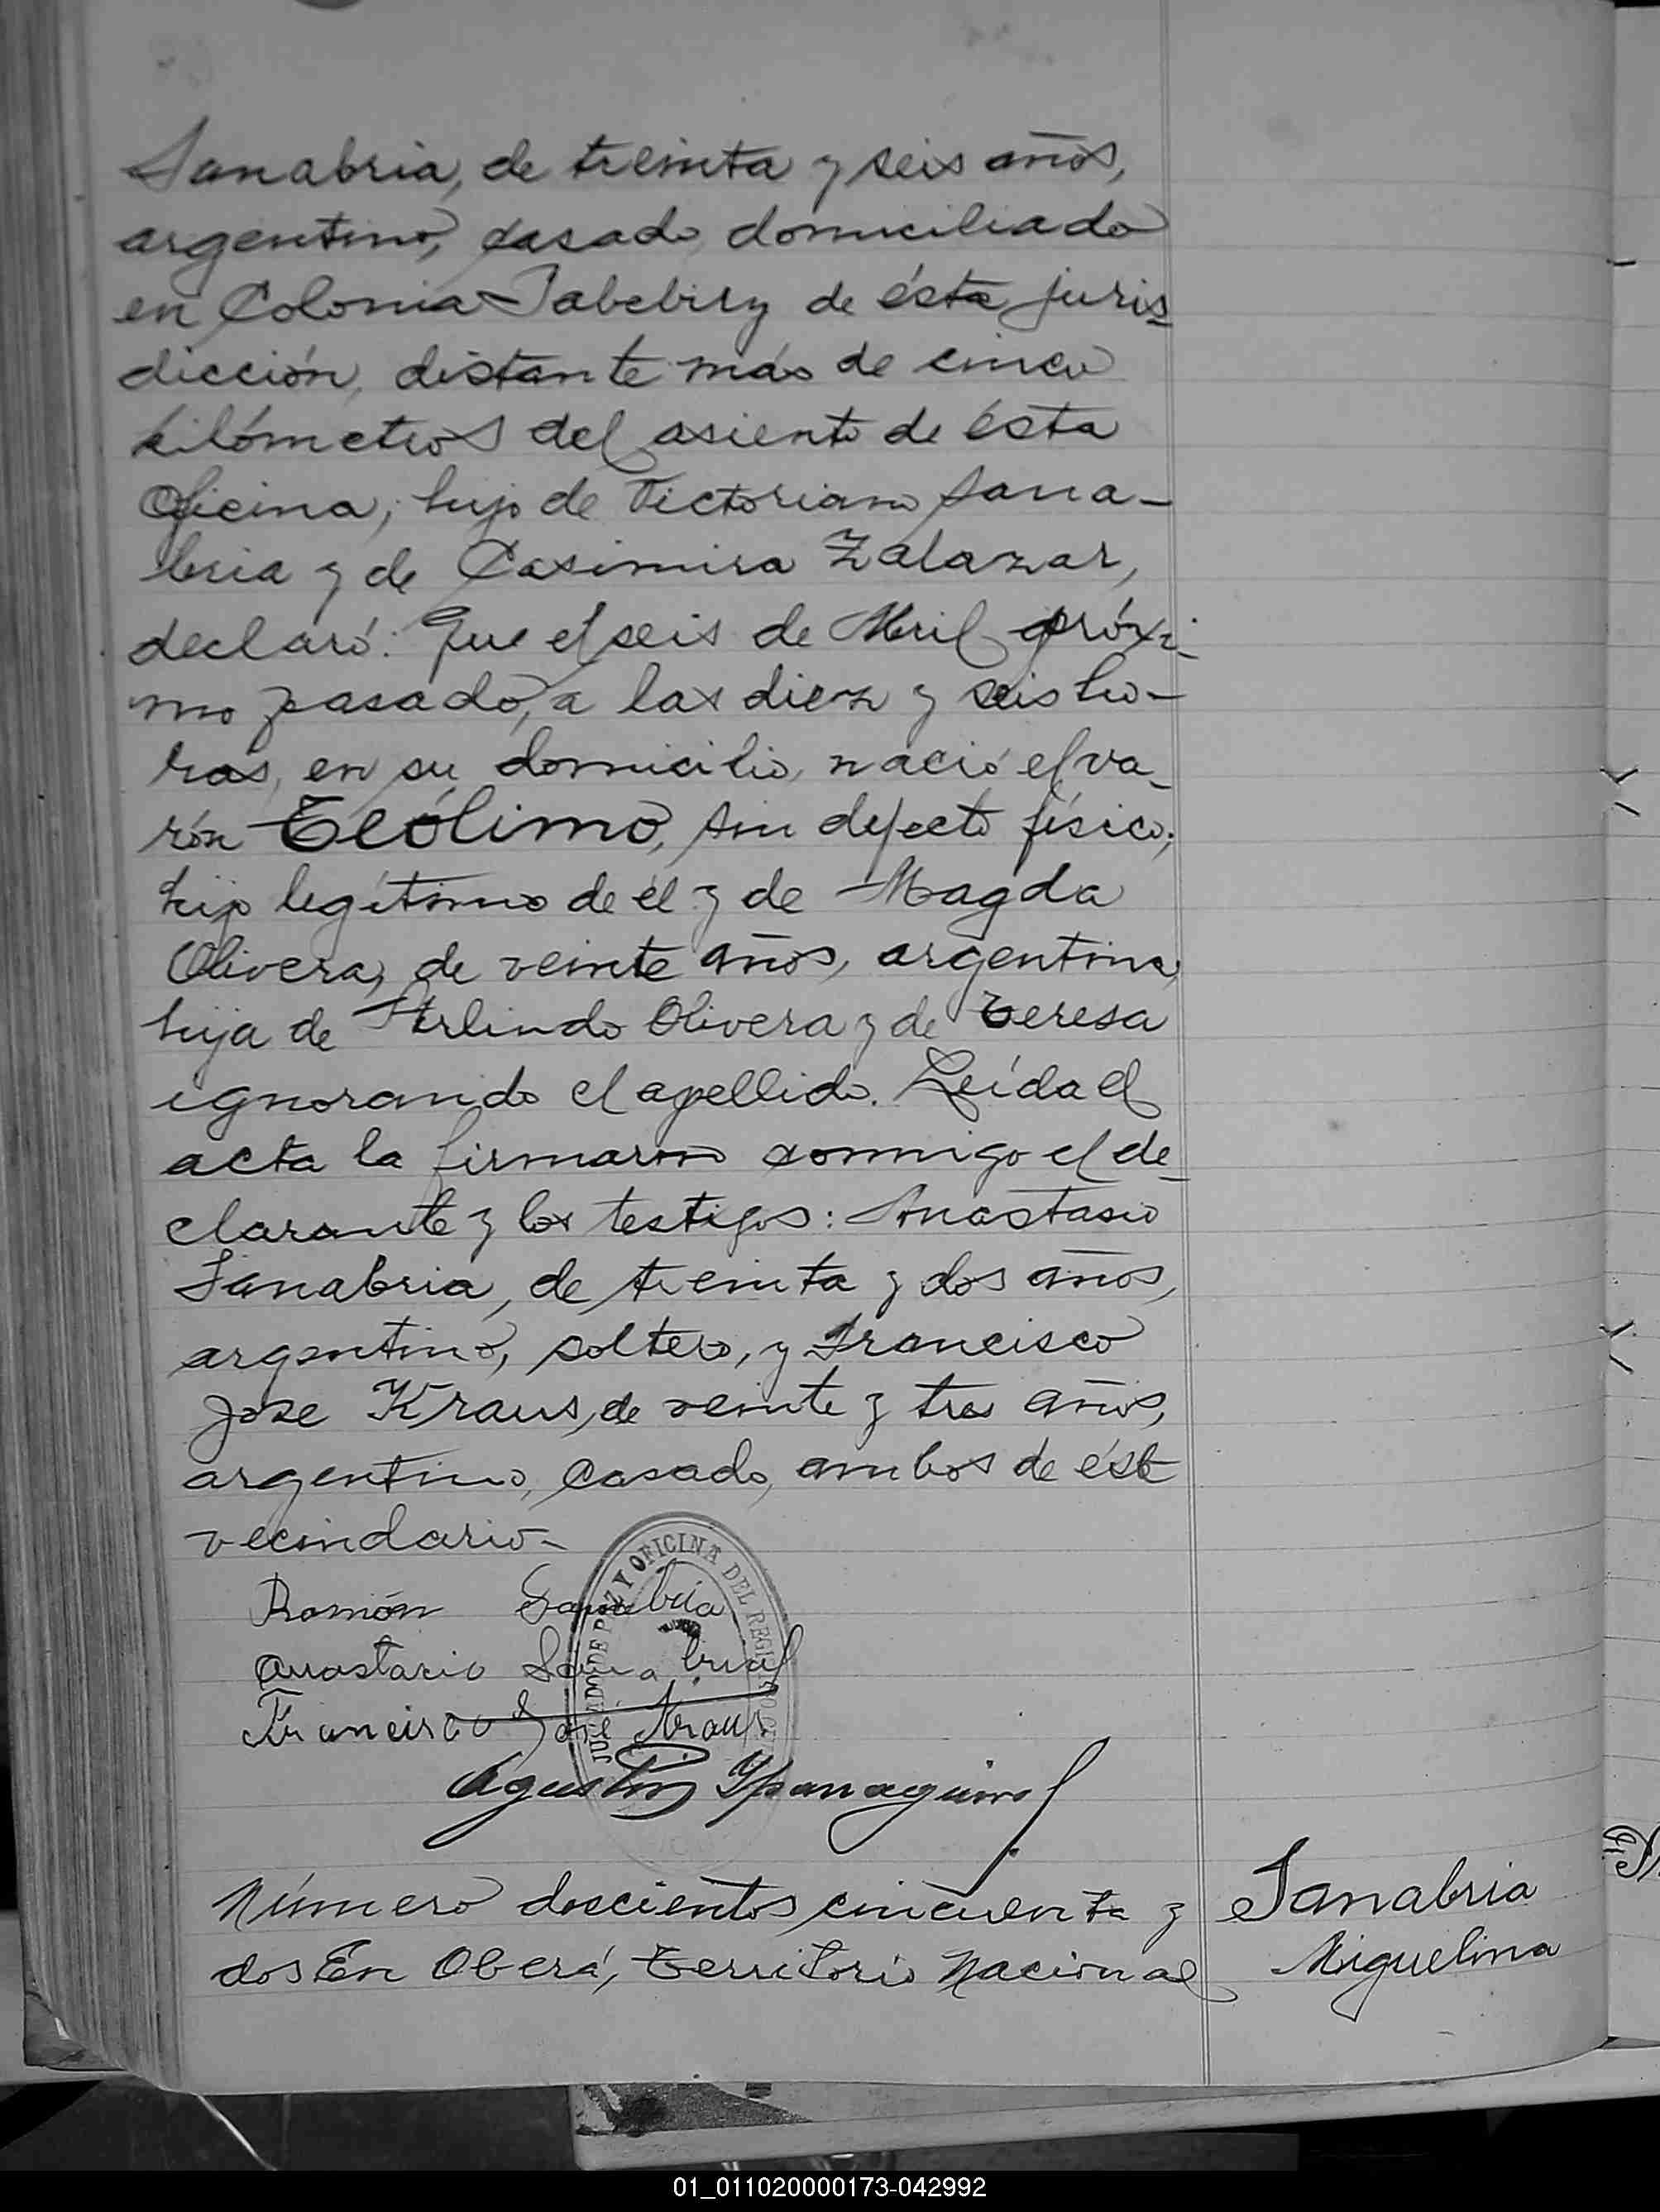 Sanabria, de treinta y seis años,
argentino, casado, domiciliado
en Colonia Yabebiry de ésta juris-
dicción, distante más de cinco
kilómetros del asiento de ésta
Oficina; hijo de Victoriano Sana-
bria y de Casimira Zalazar,
declaró: Que el seis de Abril próxi-
mo pasado, a las diez y seis ho-
ras, en su domicilio, nació el va-
rón Teólimo, sin defecto físico;
hijo legítimo de él y de Magda
Olivera, de veinte años, argentina,
hija de Arlindo Olivera y de Teresa
ignorando el apellido. Leída el
acta la firmaron conmigo el de-
clarante y los testigos: Anastasio
Sanabria, de treinta y dos años,
argentino, soltero, y Francisco
Jose Kraus, de veinte y tres años,
argentino, casado, ambos de éste
vecindario-
JUZGADO DE PAZ Y OFICINA DEL REGISTRO
Ramón Sanabria
Anastacio Sanabria
Francisco José Kraus
Agustin
Número doscientos cincuenta y
dos En Oberá, Territorio Nacional
Sanabria
Miguelina
01_011020000173-042992